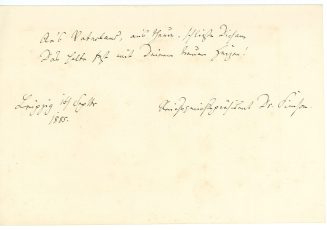 An's Vaterland, an's theure, schließ' Dich an,
Das halte fest mit Deinem ganzen Herzen!
Leipzig 16 Septbr
1885.
Reichsgerichtspräsident Dr. Simson.